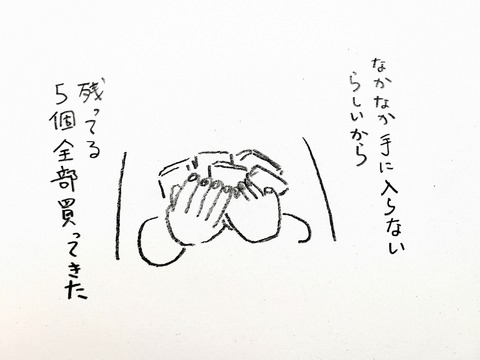 なかなか手に入らない
らしいから
残ってる
5個全部買ってきた